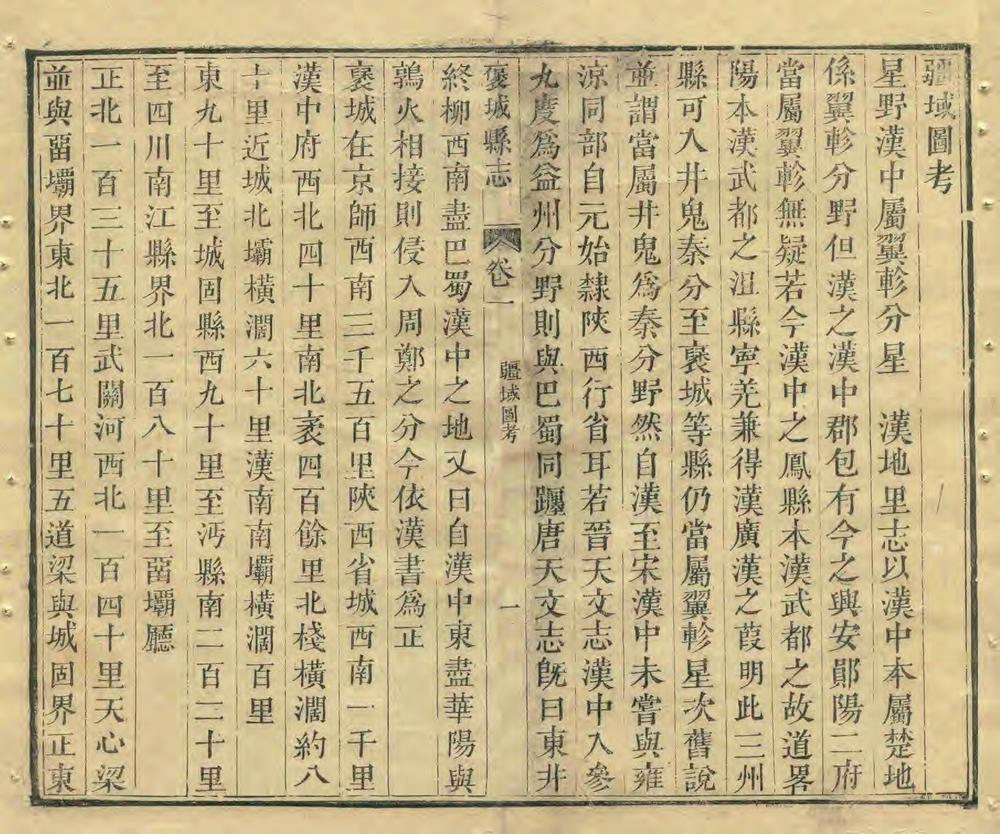 疆域圖考
星野漢中屬翼軫分星　漢地里志以漢中本屬楚地
係翼軫分野但漢之漢中郡包有今之興安鄖陽二府
當屬翼軫無疑若今漢中之鳳縣本漢武都之故道畧
陽本漢武都之沮縣寧羌兼得漢廣漢之葭明此三州
縣可入井鬼秦分至褒城等縣仍當屬翼軫星次舊說
並謂當屬井鬼爲秦分野然自漢至宋漢中未嘗與雍
涼同部自元始隸陝西行省耳若晉天文志漢中入參
九度爲益州分野則與巴蜀同躔唐天文志旣曰東井
褒城縣志　卷一　疆域圖考　一
終柳西南盡巴蜀漢中之地又曰自漢中東盡華陽與
鶉火相接則侵入周鄭之分今依漢書爲正
褒城在京師西南三千五百里陝西省城西南一千里
漢中府西北四十里南北袤四百餘里北棧橫濶約八
十里近城北壩橫濶六十里漢南南壩橫濶百里
東九十里至城固縣西九十里至沔縣南二百二十里
至四川南江縣界北一百八十里至畱壩廳
正北一百三十五里武關河西北一百四十里天心梁
並與畱壩界東北一百七十里五道梁與城固界正東